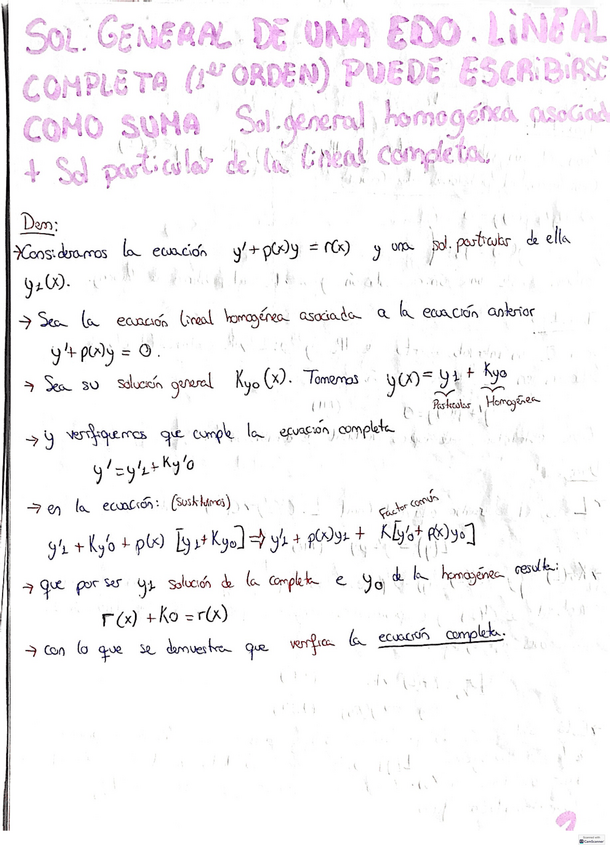 SOL. GENERAL DE UNA EDO. LINEAL
COMPLETA (1er ORDEN) PUEDE ESCRIBIRSE
COMO SUMA Sol. general homogénea asociad
+ Sol particular de la lineal completa.
Dem:
→ Consideramos la ecuación y' + p(x)y = r(x) y una sol. particular de ella
y₁(x).
→ Sea la ecuación lineal homogénea asociada a la ecuación anterior
y' + p(x)y = 0.
→ Sea su solución general Ky₀(x). Tomemos y(x) = y₁ + Ky₀
Particular, Homogénea
→ y verifiquemos que cumple la ecuación completa
y' = y'₁ + Ky'₀
→ en la ecuación: (sustituimos)
Factor común
y'₁ + Ky'₀ + p(x) [y₁ + Ky₀] ⇒ y'₁ + p(x)y₁ + K[y'₀ + p(x)y₀]
→ que por ser y₁ solución de la completa e y₀ de la homogénea resulta:
r(x) + K0 = r(x)
→ con lo que se demuestra que verifica la ecuación completa.
CamScanner